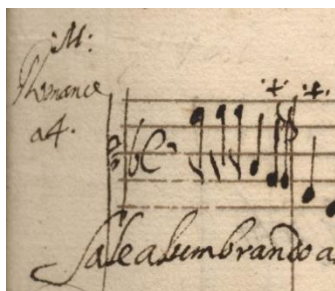 :M:
Romance
a4.
Sale alumbrando a